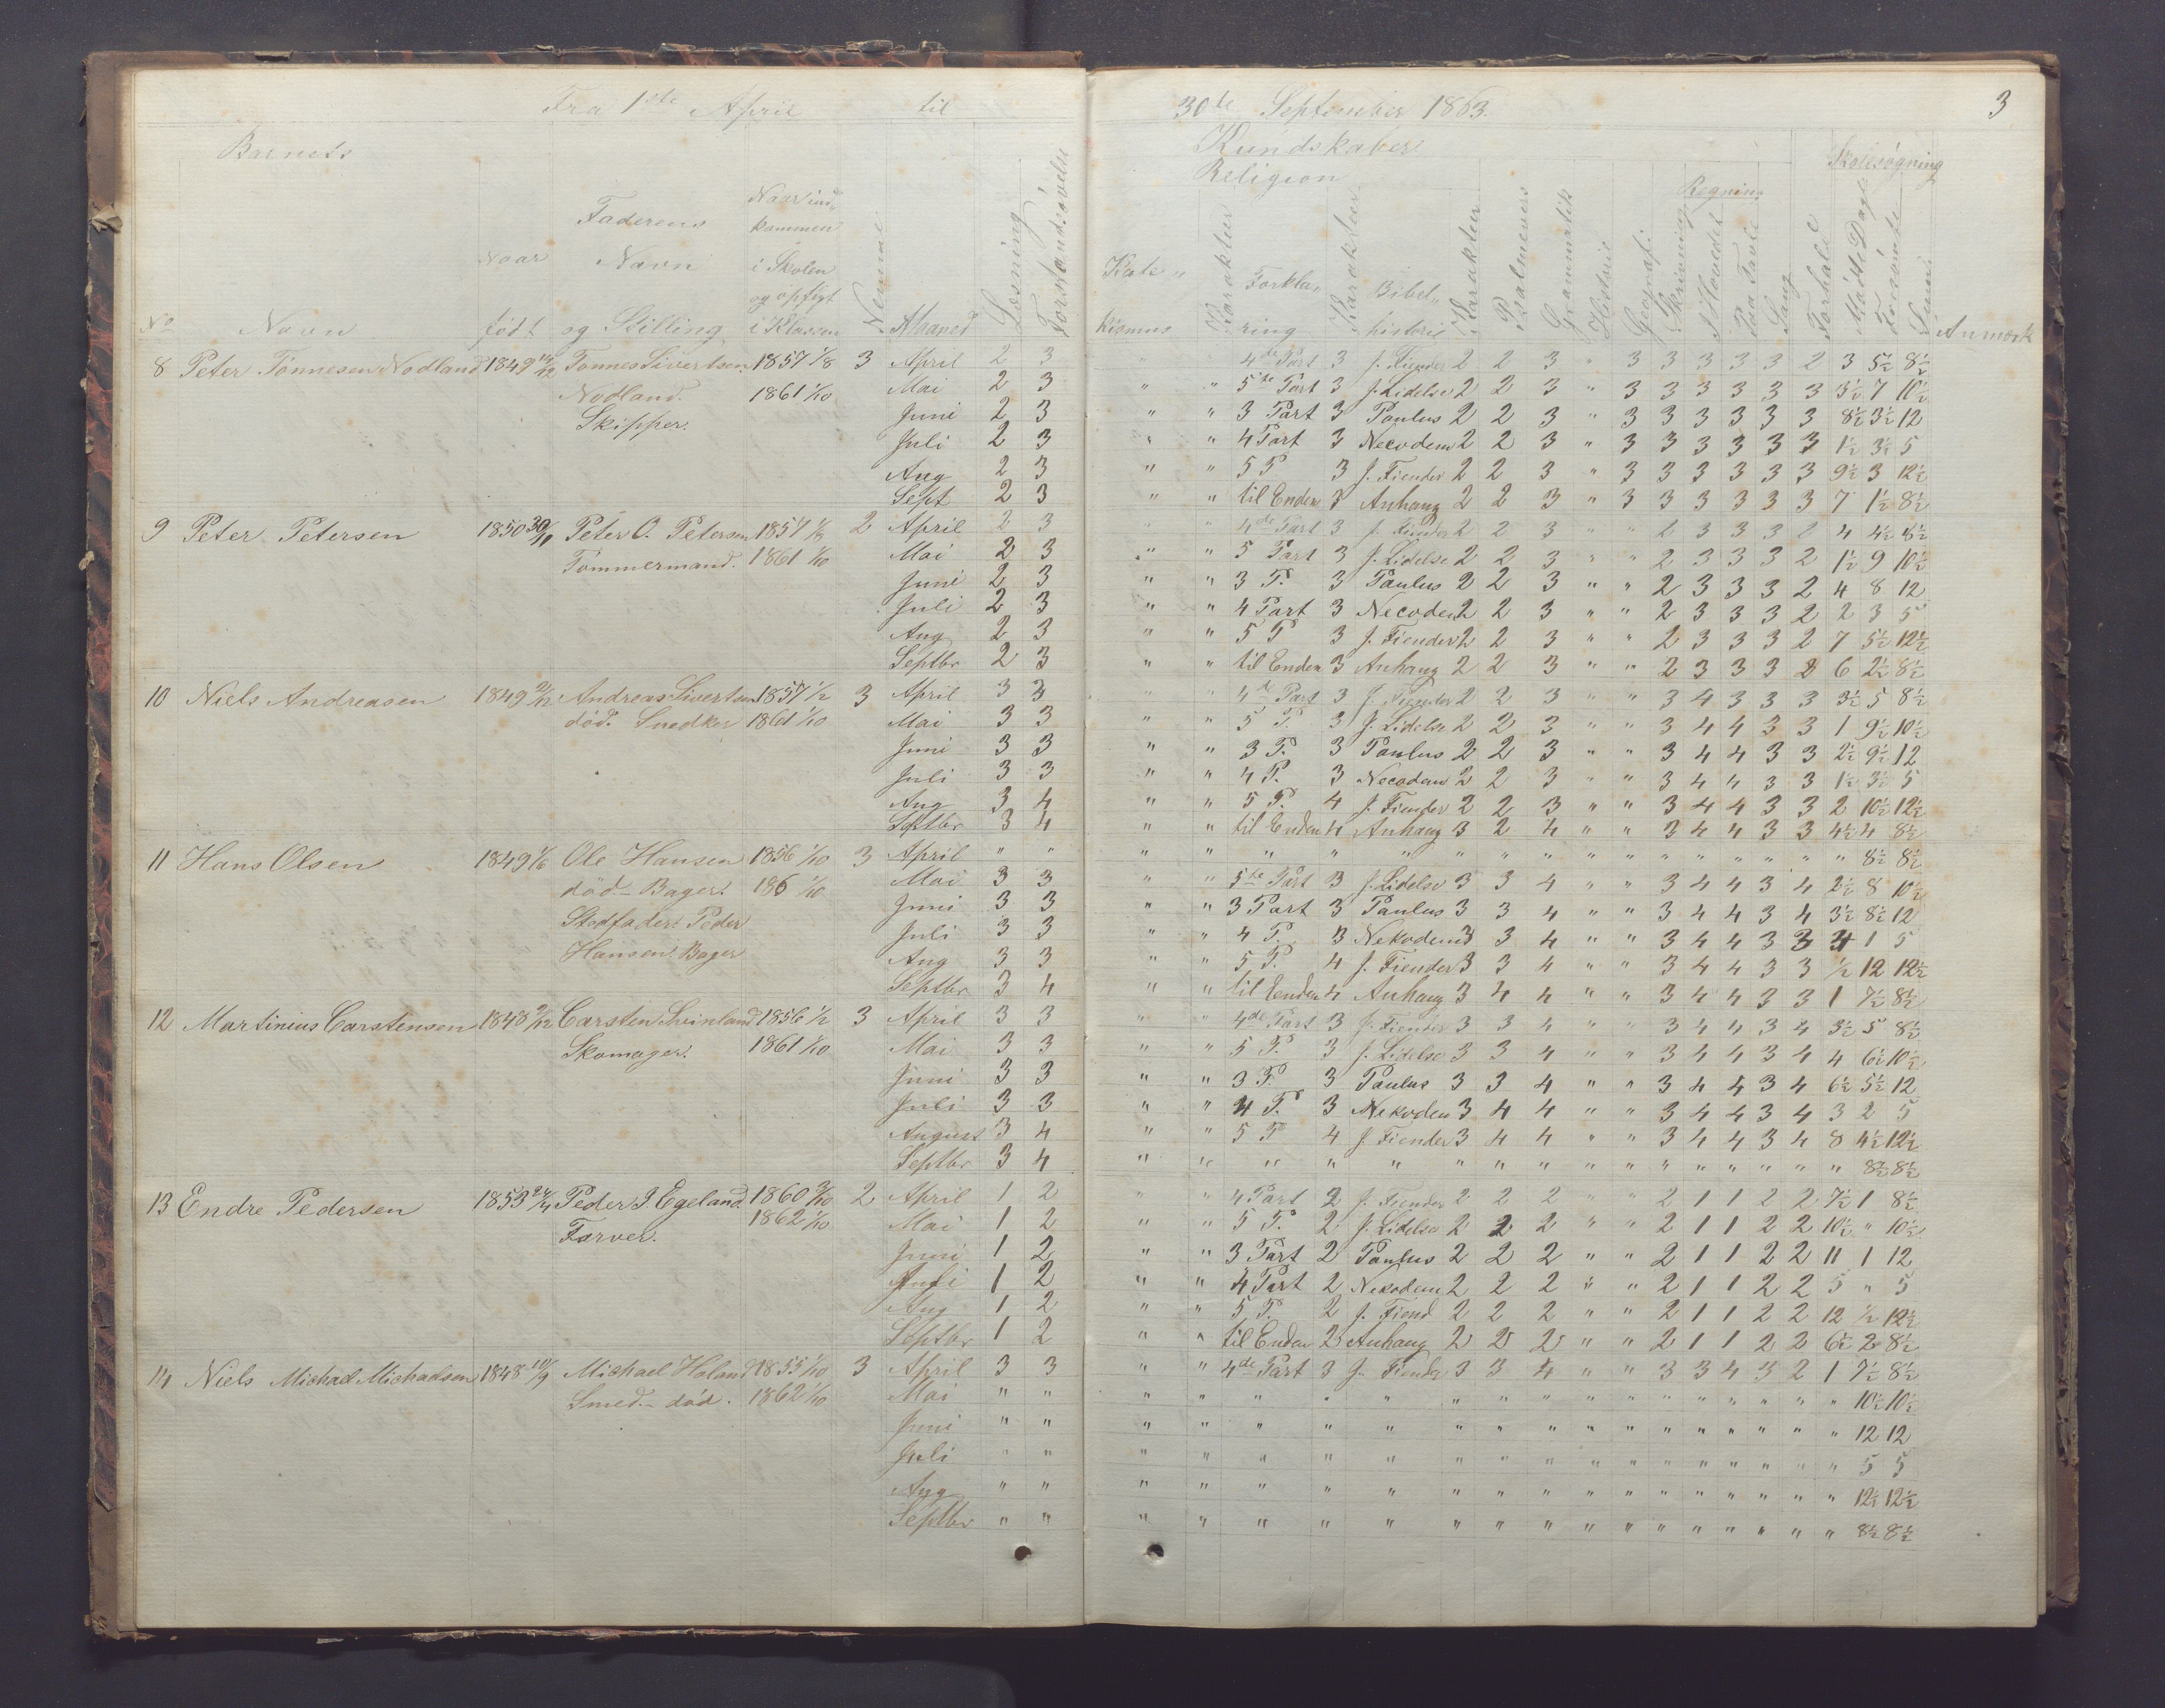 Fra 1ste April til 30te September 1863. 3
Barnets Kundskaber. Skolesøgning
Religion Regning
No Navn Naar født Faderens Navn og Stilling Naar ind- kommen i Skolen og opflyt i Klassen Nemme Maaned Læsning Forstandsøvelse Kate- kismus Karakteer Forkla- ring Karakteer Bibel- historie Karakteer Psalmevers Grammatik Historie Geografi Skrivning I Hovedet Paa Tavle Sang Forhold Mødte Dage Forsømte Summa Anmærk
8 Peter Tönnesen Nodland 1849 14/12 Tonnes Sivertsen 1857 1/8 3 April 2 3 " 4de Part 3 J. Fiender 2 2 3 " 3 3 3 3 3 2 3 5½ 8½
Nodland. 1861 1/10 Mai 2 3 " " 5te Part 3 J. Lidelse 2 2 3 " 3 3 3 3 3 3 3½ 7 10½
Skipper. Juni 2 3 " " 3 Part 3 Paulus 2 2 3 " 3 3 3 3 3 3 8½ 3½ 12
Juli 2 3 " " 4 Part 3 Necodem 2 2 3 " 3 3 3 3 3 3 1½ 3½ 5
Aug 2 3 " " 5 P 3 J. Fiender 2 2 3 " 3 3 3 3 3 3 9½ 3 12½
Sept 2 3 " " til Enden 3 Anhang 2 2 3 " 3 3 3 3 3 3 7 1½ 8½
9 Peter Petersen 1850 30/11 Peter O. Petersen 1857 1/8 2 April 2 3 " " 4de Part 3 J. Fiender 2 2 3 " " 2 3 3 3 2 4 4½ 8½
Tømmermand. 1861 1/10 Mai 2 3 " " 5 Part 3 J. Lidelse 2 2 3 " " 2 3 3 3 2 1½ 9 10½
Juni 2 3 " " 3 P. 3 Paulus 2 2 3 " " 2 3 3 3 2 4 8 12
Juli 2 3 " " 4 Part 3 Necodem 2 2 3 " " 2 3 3 3 2 2 3 5
Aug 2 3 " " 5 P 3 J. Fiender 2 2 3 " " 2 3 3 3 2 7 5½ 12½
Septbr 2 3 " " til Enden 3 Anhang 2 2 3 " " 2 3 3 3 2 6 2½ 8½
10 Niels Andreasen 1849 2/12 Andreas Sivertsen 1857 1/2 3 April 3 3 " " 4de Part 3 J. Fiender 2 2 3 " " 3 4 3 3 3 3½ 5 8½
död. Snedker 1861 1/10 Mai 3 3 " " 5 P. 3 J. Lidelse 2 2 3 " " 3 4 4 3 3 1 9½ 10½
Juni 3 3 " " 3 P. 3 Paulus 2 2 3 " " 3 4 4 3 3 2½ 9½ 12
Juli 3 3 " " 4 P. 3 Necodem 2 2 3 " " 3 4 4 3 3 1½ 3½ 5
Aug 3 4 " " 5 P. 4 J. Fiender 2 2 3 " " 3 4 4 3 3 2 10½ 12½
Septbr 3 4 " " til Enden 4 Anhang 3 2 4 " " 3 4 4 3 3 4½ 4 8½
11 Hans Olsen 1849 1/6 Ole Hansen 1856 1/10 3 April " " " " " " " " " " " " " " " " " " 8½ 8½
död - Bager. 186 1/10 Mai 3 3 " " 5te Part 3 J. Lidelse 3 3 4 " " 3 4 4 3 4 2½ 8 10½
Stedfader: Peder Juni 3 3 " " 3 Part 3 Paulus 3 3 4 " " 3 4 4 3 4 3½ 8½ 12
Hansen. Bager Juli 3 3 " " 4 P. 3 Nekodem 3 3 4 " " 3 4 4 3 3 4 1 5
Aug 3 3 " " 5 P. 4 J. Fiender 3 3 4 " " 3 4 4 3 3 ½ 12 12½
Septbr 3 4 " " til Enden 4 Anhang 3 4 4 " " 3 4 4 3 3 1 7½ 8½
12 Martinius Carstensen 1848 2/12 Carsten Svinland 1856 1/2 3 April 3 3 " " 4de Part 3 J. Fiender 3 3 4 " " 3 4 4 3 4 3½ 5 8½
Skomager. 1861 1/10 Mai 3 3 " " 5 P. 3 J. Lidelse 3 3 4 " " 3 4 4 3 4 4 6½ 10½
Juni 3 3 " " 3 P. 3 Paulus 3 3 4 " " 3 4 4 3 4 6½ 5½ 12
Juli 3 3 " " 4 P. 3 Nekodem 3 4 4 " " 3 4 4 3 4 3 2 5
August 3 4 " " 5 P 4 J. Fiender 3 4 4 " " 3 4 4 3 4 8 4½ 12½
Septbr 3 4 " " " " " " " " " " " " " " " " 8½ 8½
13 Endre Pedersen 1853 24/4 Peder J. Egeland. 1860 3/10 2 April 1 2 " " 4 Part 2 J. Fiender 2 2 2 " " 2 1 1 2 2 7½ 1 8½
Farver. 1862 1/10 Mai 1 2 " " 5 P. 2 J. Lidelse 2 2 2 " " 2 1 1 2 2 10½ " 10½
Juni 1 2 " " 3 Part 2 Paulus 2 2 2 " " 2 1 1 2 2 11 1 12
Juli 1 2 " " 4 Part 2 Nekodem 2 2 2 " " 2 1 1 2 2 5 " 5
Aug 1 2 " " 5 P. 2 J. Fiend 2 2 2 " " 2 1 1 2 2 12 ½ 12½
Septbr 1 2 " " til Enden 2 Anhang 2 2 2 " " 2 1 1 2 2 6½ 2 8½
14 Niels Michael Michaelsen 1848 10/9 Michael Haland 1855 1/10 3 April 3 3 " " 4de Part 3 J. Fiender 3 3 4 " " 3 3 4 3 2 1 7½ 8½
Smed - död. 1862 1/10 Mai " " " " " " " " " " " " " " " " " " 10½ 10½
Juni " " " " " " " " " " " " " " " " " " 12 12
Juli " " " " " " " " " " " " " " " " " " 5 5
Aug " " " " " " " " " " " " " " " " " " 12½ 12½
Septbr " " " " " " " " " " " " " " " " " " 8½ 8½